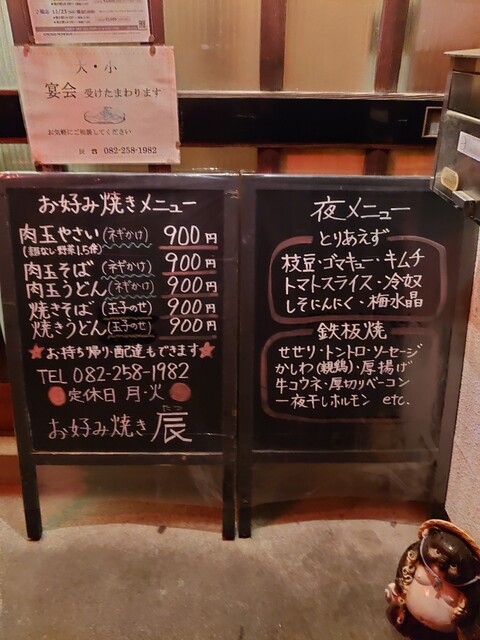 大・小
宴会 受けたまわります
お気軽にご相談してください
辰 ☎ 082-258-1982
お好み焼きメニュー
肉玉やさい (ネギかけ) 900円
(麺なし野菜1.5倍)
肉玉そば (ネギかけ) 900円
肉玉うどん (ネギかけ) 900円
焼きそば (玉子のせ) 900円
焼きうどん (玉子のせ) 900円
★お持ち帰り・配達もできます★
TEL 082-258-1982
定休日 月・火
お好み焼き 辰
たつ
夜メニュー
とりあえず
枝豆・ゴマキュー・キムチ
トマトスライス・冷奴
しそにんにく・梅水晶
鉄板焼
せせり・トントロ・ソーセージ
かしわ(親鶏)・厚揚げ
牛コウネ・厚切りベーコン
一夜干しホルモン etc.